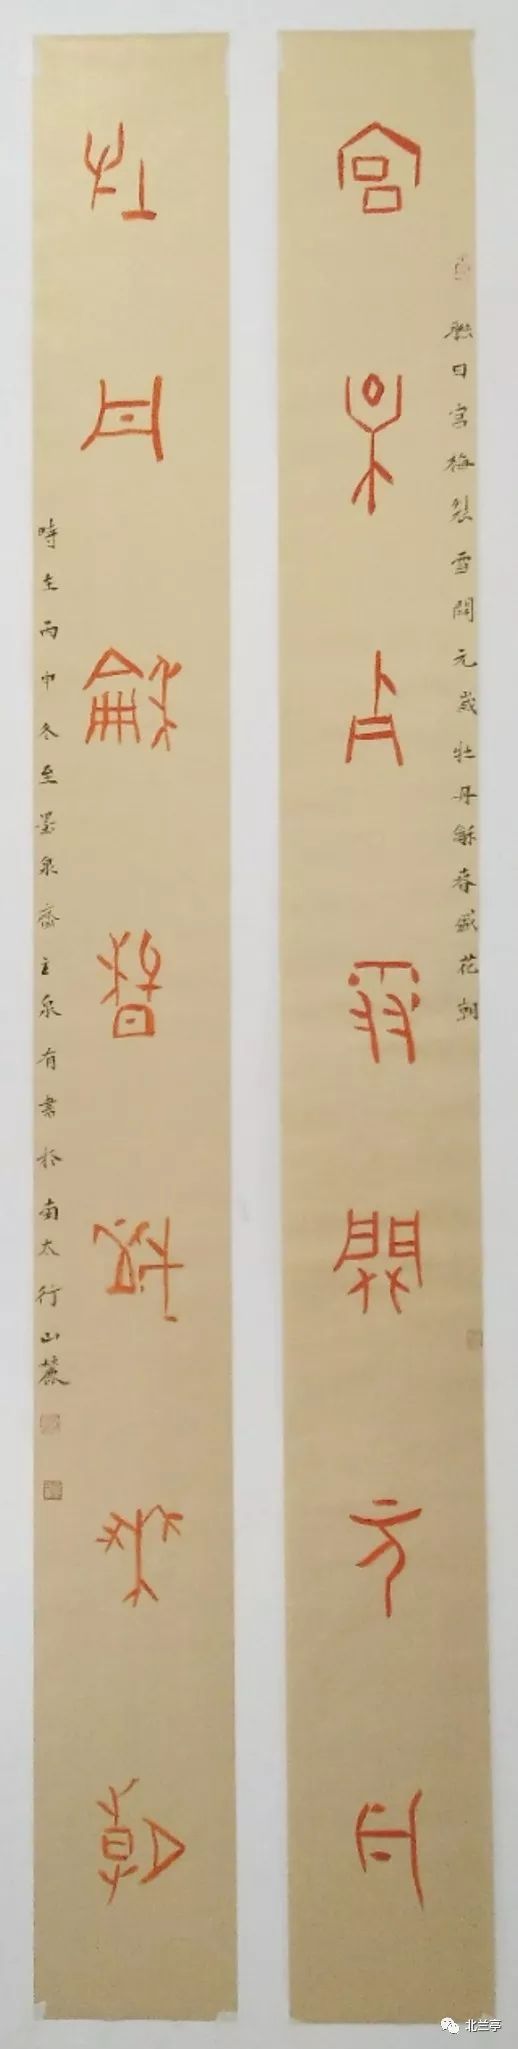 宮梅裂雪開元歲
聯曰宮梅裂雪開元歲牡丹龢春盛花朝
牡丹龢春盛花朝
時在丙申冬至墨泉齋主泉有書於南太行山麓
北兰亭